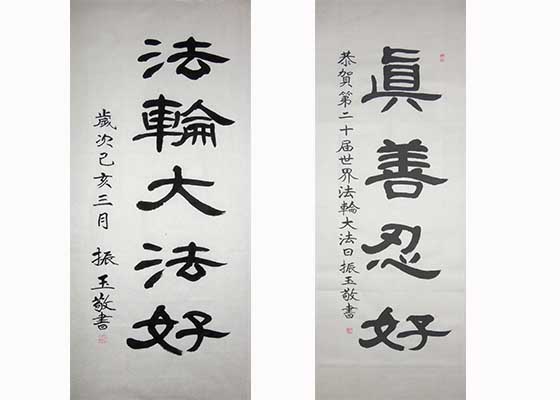 法輪大法好
歲次己亥三月 振玉敬書
眞善忍好
恭賀第二十届世界法輪大法日振玉敬書